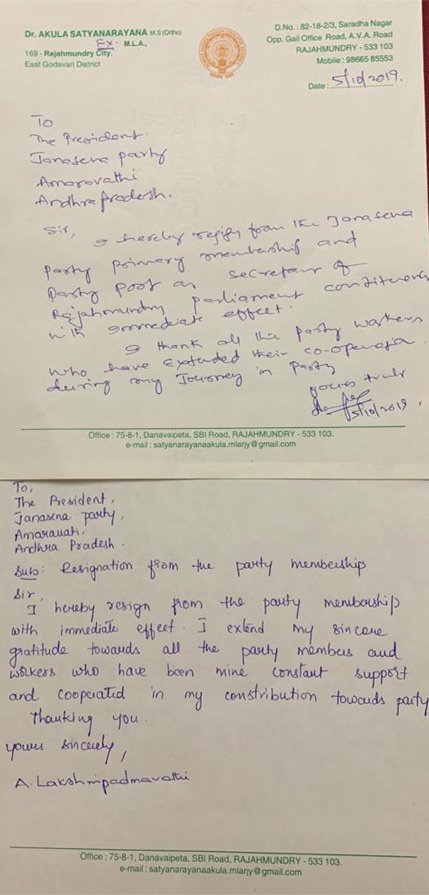 Dr. AKULA SATYANARAYANA M.S (Ortho)
Ex. M.L.A.,
169 - Rajahmundry City.
East Godavari District
D.No.: 82-18-2/3, Saradha Nagar
Opp. Gail Office Road, A.V.A. Road
RAJAHMUNDRY - 533 103
Mobile : 98665 85553
Date : 5/10/2019.
To
The President.
Janasena party
Amaravathi
Andhra pradesh.
Sir,
I hereby resign from the Janasena
party primary membership and
party post as secretary of
Rajahmundry parliament constituency
with immediate effect.
I thank all the party workers
who have extended their co-operation
during my Journey in Party
yours truly
5/10/2019.
Office : 75-8-1, Danavaipeta, SBI Road, RAJAHMUNDRY - 533 103.
e-mail : satyanarayanaakula.mlarjy@gmail.com
To,
The President,
Janasena party,
Amaravati,
Andhra Pradesh.
Sub: Resignation from the party membership
Sir,
I hereby resign from the party membership
with immediate effect. I extend my sincere
gratitude towards all the party members and
workers who have been mine constant support
and cooperated in my constribution towards party
Thanking you.
yours sincerely,
A. Lakshmipadmavathi
Office : 75-8-1, Danavaipeta, SBI Road, RAJAHMUNDRY - 533 103.
e-mail : satyanarayanaakula.mlarjy@gmail.com